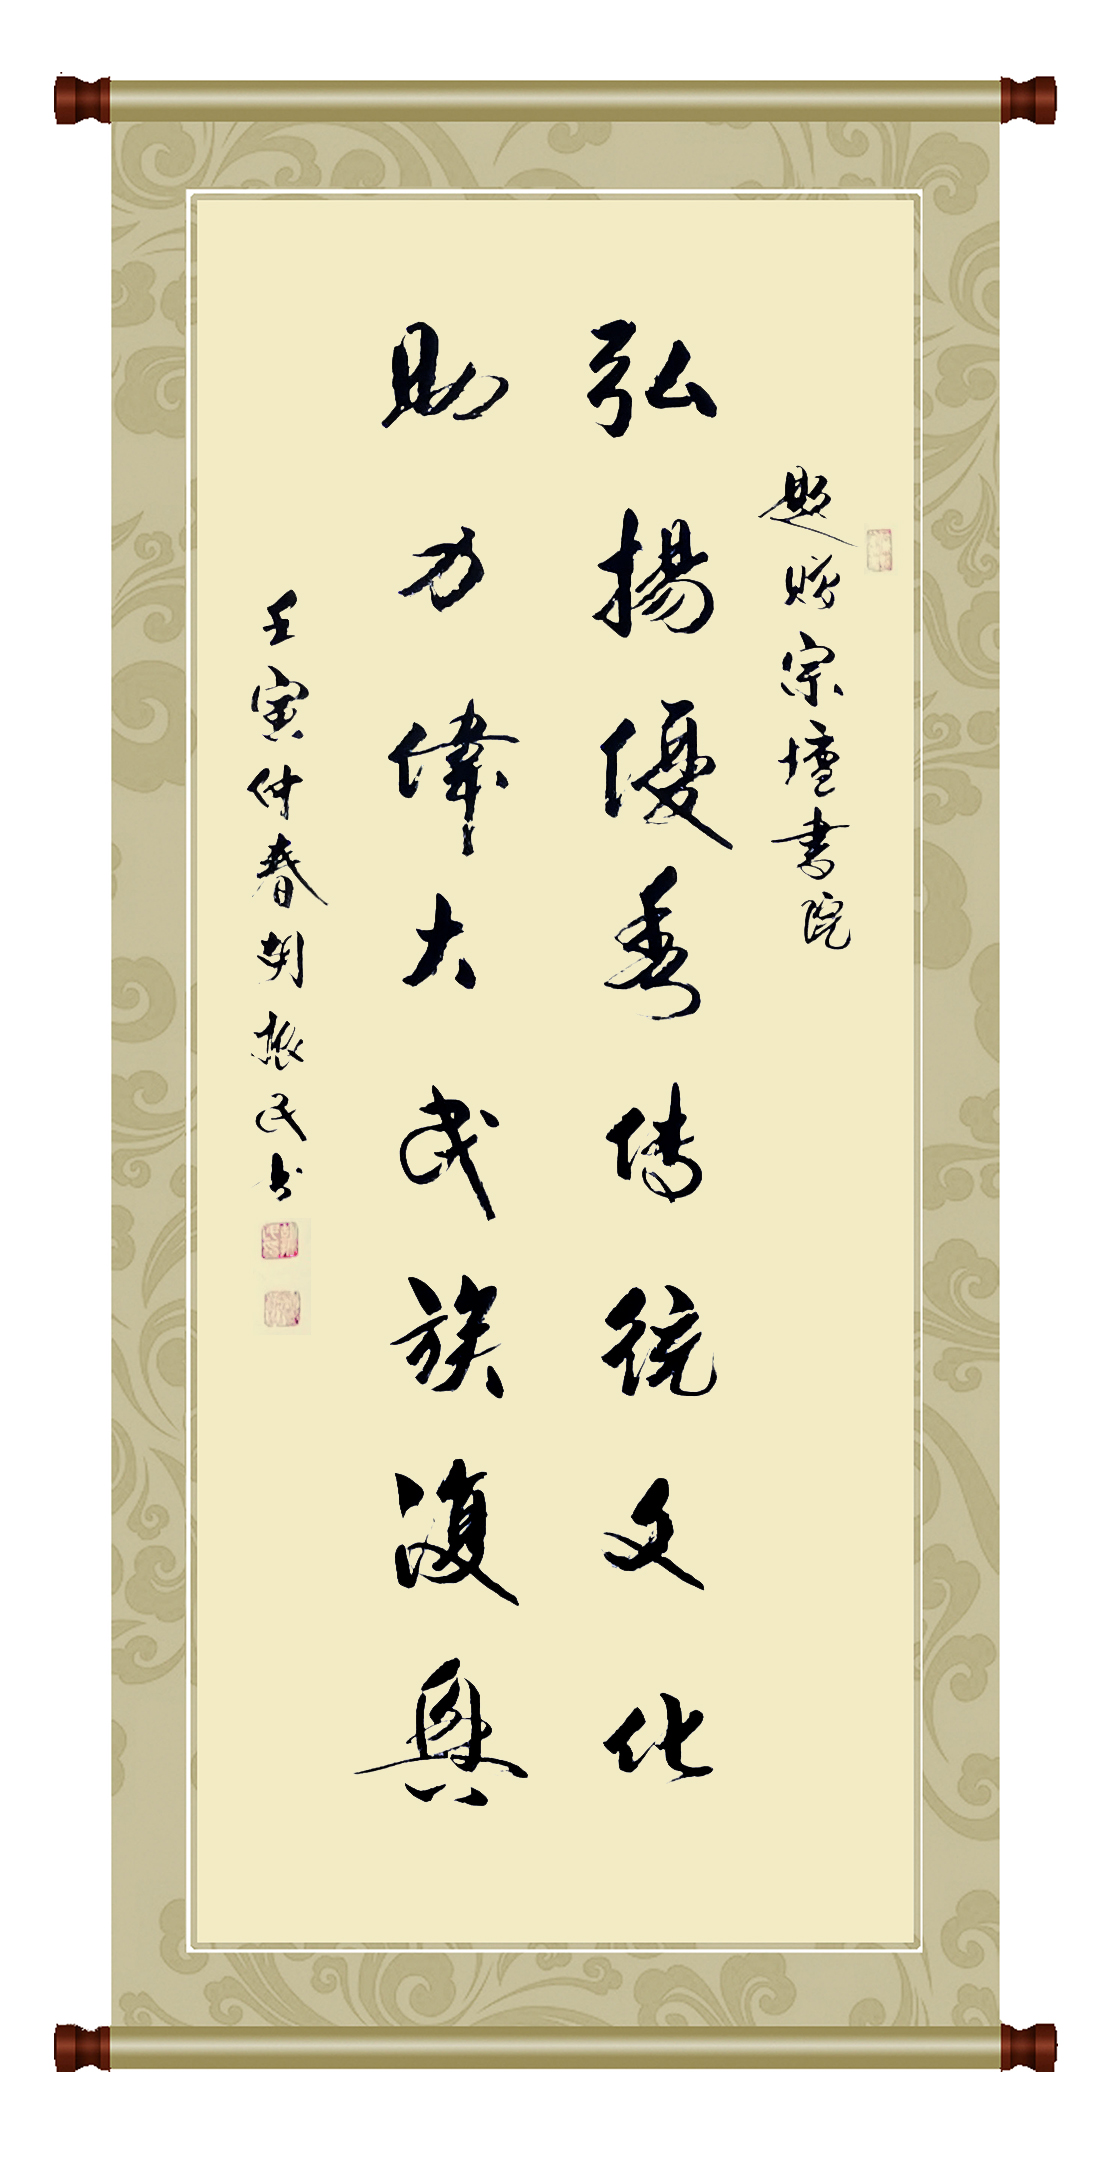 题赠宗壇書院
弘揚優秀传统文化
助力偉大民族復興
壬寅仲春胡振民书